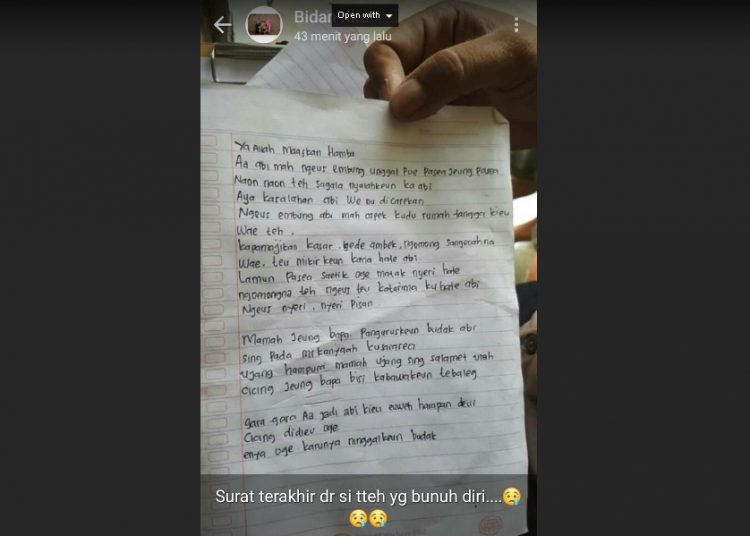 Bidan
Open with
43 menit yang lalu
Ya Allah Maafkan Hamba
Aa abi mah ngeus embung unggal poe Pasea jeung
Naon naon teh sagala nyalahkeun ka abi
Aya kasalahan abi We nu dicarekan
Ngeus embung abi mah capek kudu rumah tangga kieu
Wae teh.
kapamajikan kasar, gede ambek, ngomong sangeunahna
Wae. teu mikirkeun kana hate abi
Lamun Pasea saetik oge matak nyeri hate
ngomongna teh ngeus teu katarima ku hate abi
Ngeus nyeri, nyeri Pisan
Mamah Jeung bapa. Panguruskeun budak abi
sing Pada mikanyaah
ujang hampura mamah ujang sing salamet ulah
cicing jeung bapa bisi kabawakeun
gara gara Aa jadi abi kieu euweh harapan deui
Cicing didieu oge
enya oge karunya ninggalkeun budak
Surat terakhir dr si tteh yg bunuh diri....😢
😢😢